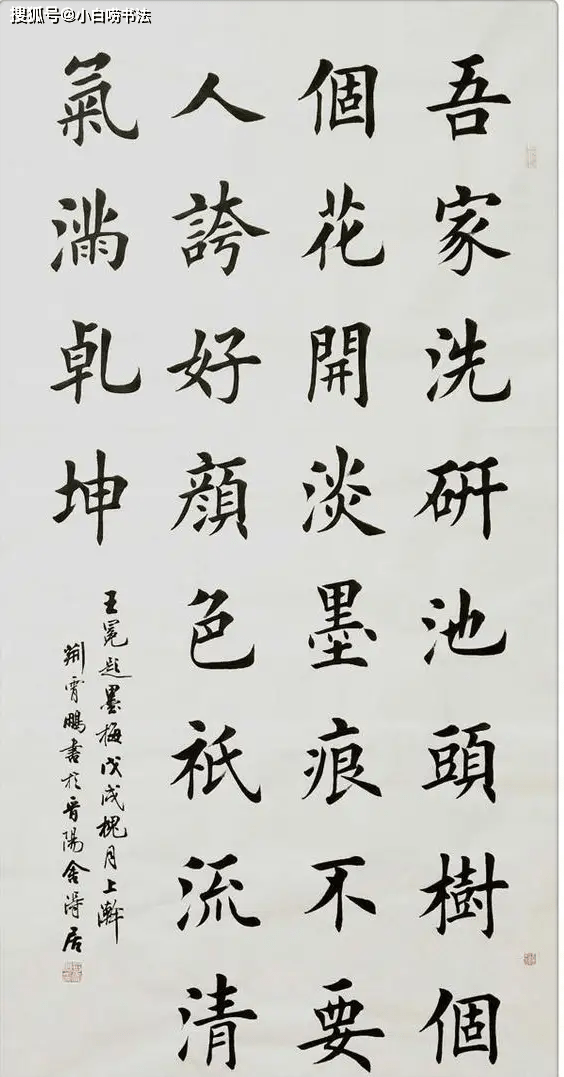 搜狐号@小白唠书法
吾家洗硏池頭樹個
個花開淡墨痕不要
人誇好顔色祇流清
氣滿乹坤
王冕題墨梅戊戌槐月上澣
荆霄鵬書於晉陽舍得居